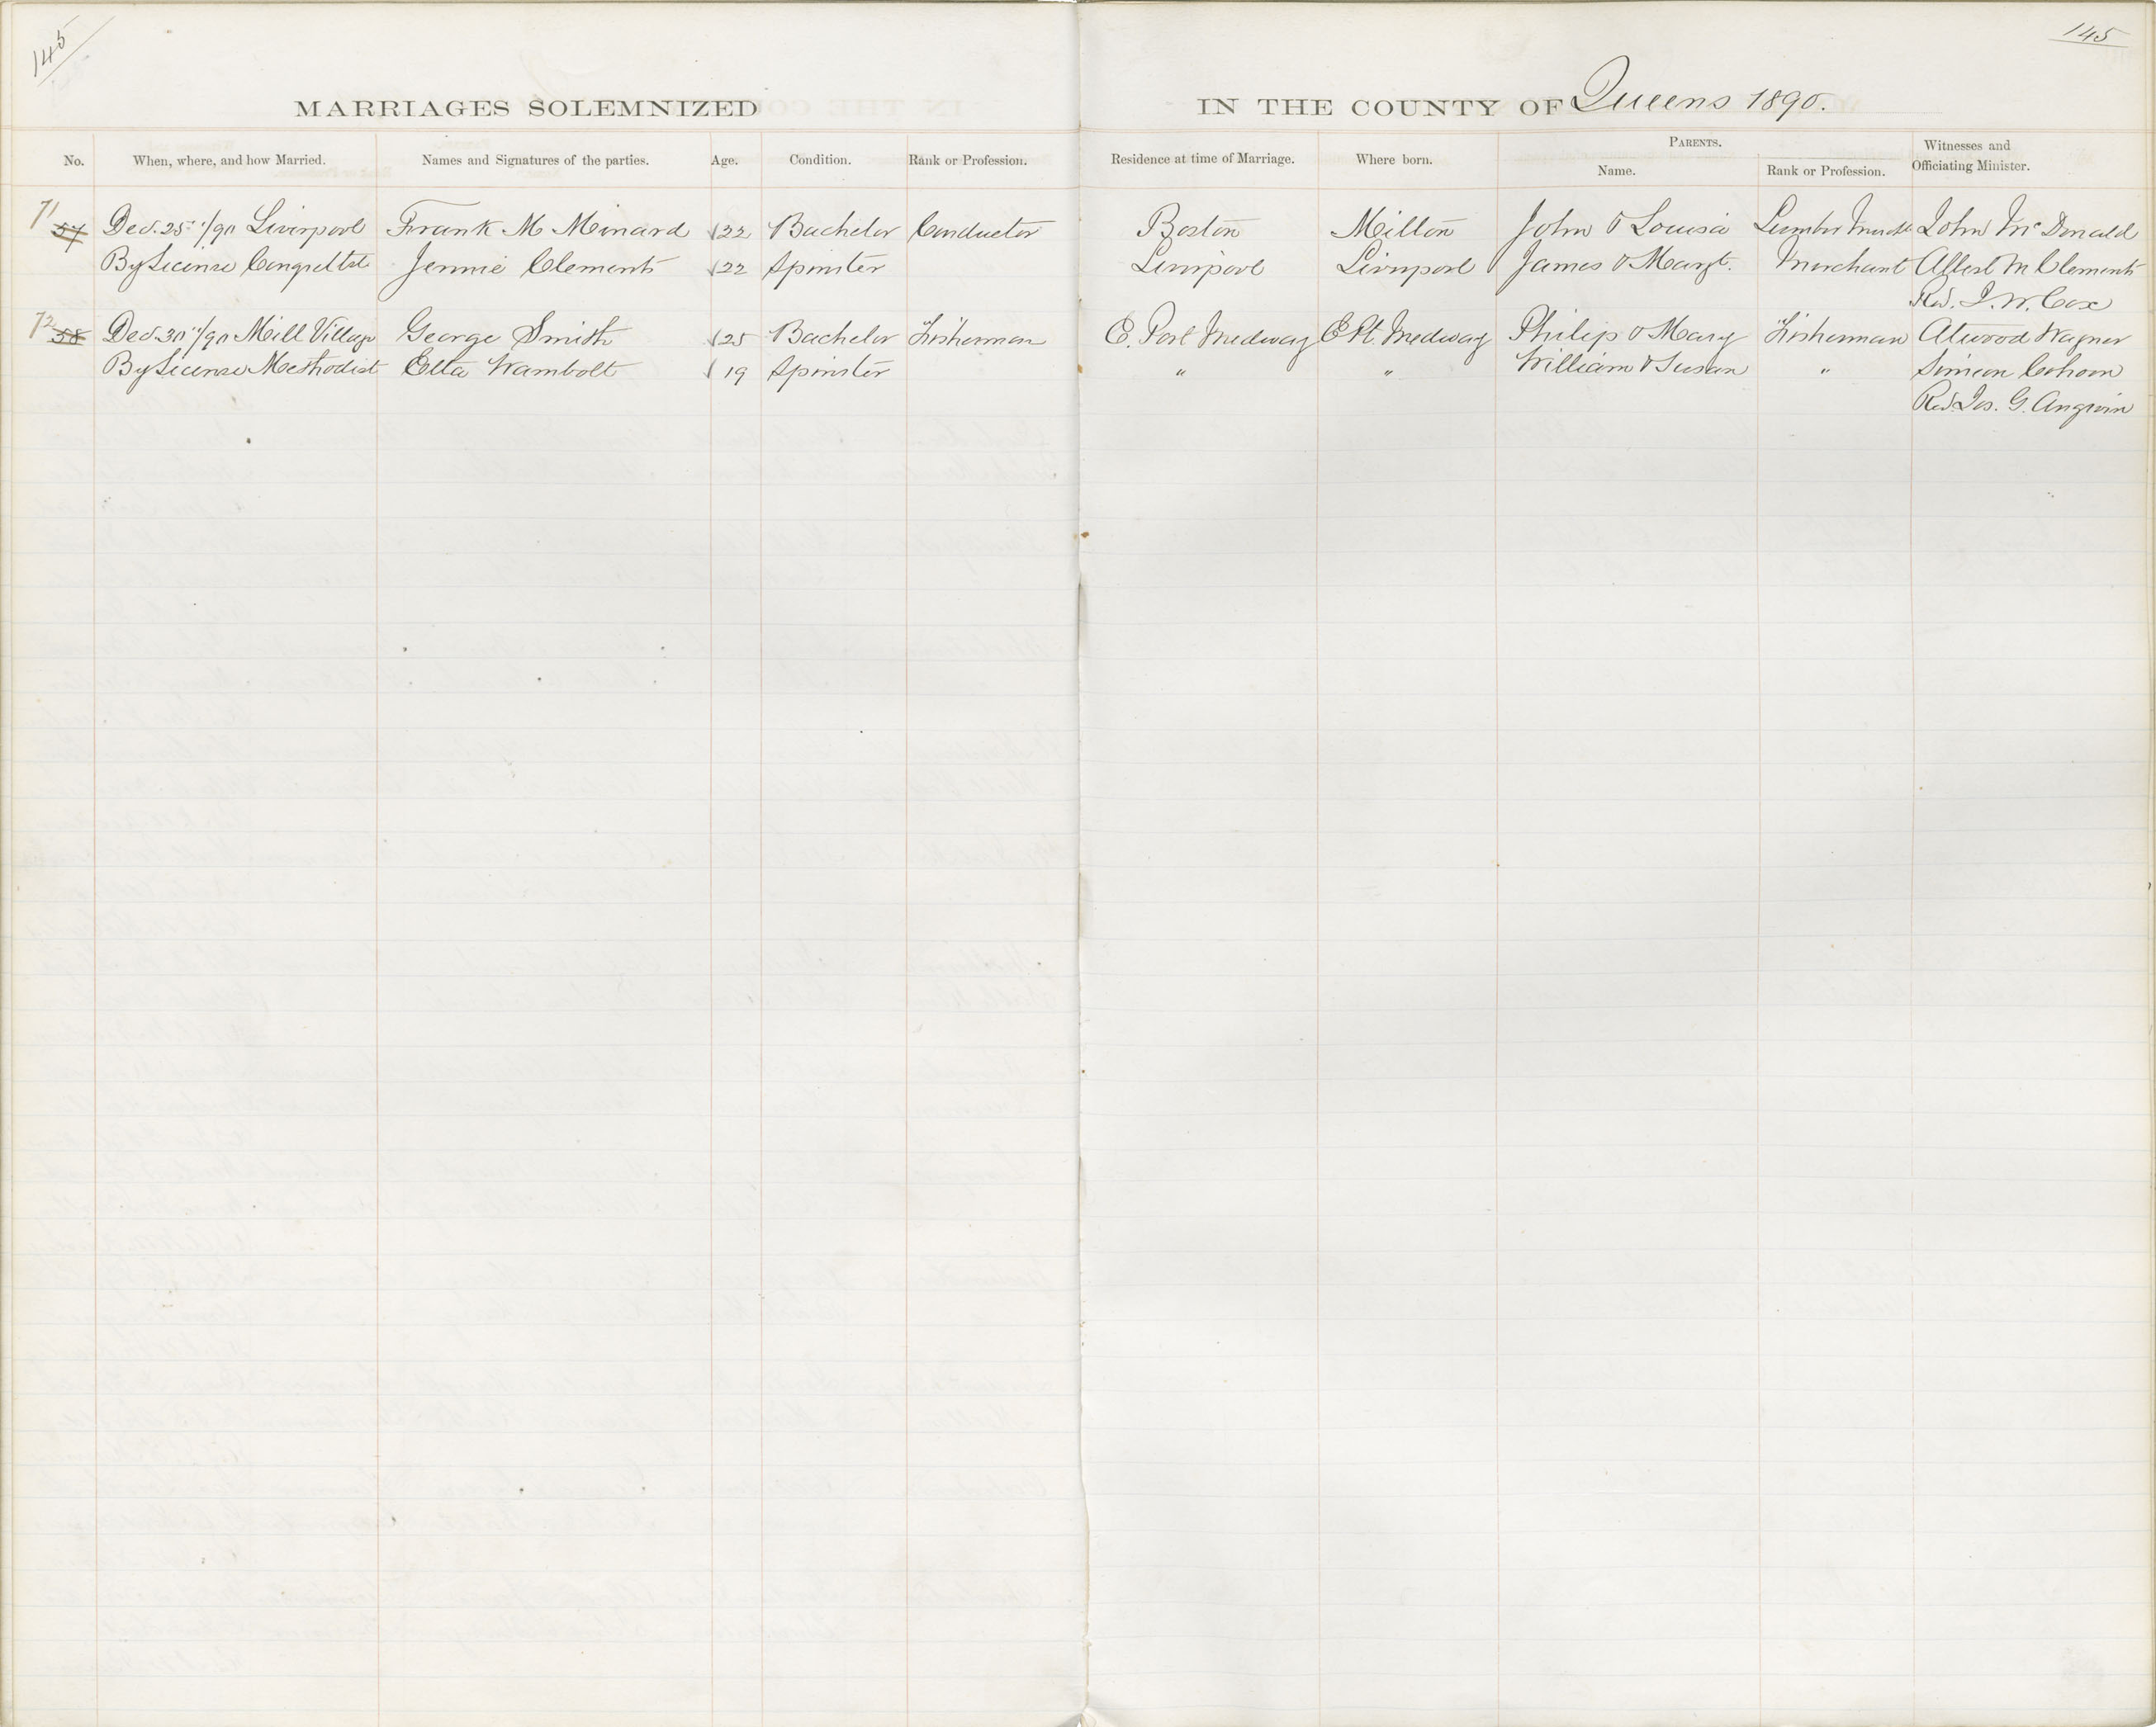 145
145
MARRIAGES SOLEMNIZED IN THE COUNTY OF Queens 1890.
No. When, where, and how Married. Names and Signatures of the parties. Age. Condition. Rank or Profession. Residence at time of Marriage. Where born. PARENTS. Name. Rank or Profession. Witnesses and Officiating Minister.
71 57 Dec. 25" /90 Liverpool Frank M Minard 22 Bachelor Conductor Boston Milton John & Louisa Lumber John McDonald
By License Jennie Clements 22 Spinster Liverpool Liverpool James & Margt. Merchant Albert M Clements
Rev. I. W. Cox
72 58 Dec. 30" /90 Mill Village George Smith 25 Bachelor Fisherman E. Port Medway E Pt. Medway Philip & Mary Fisherman Atwood Wagner
By License Methodist Etta Wambolt 19 Spinster " " William & Susan " Simeon Cohoon
Rev. Jos. G. Angwin